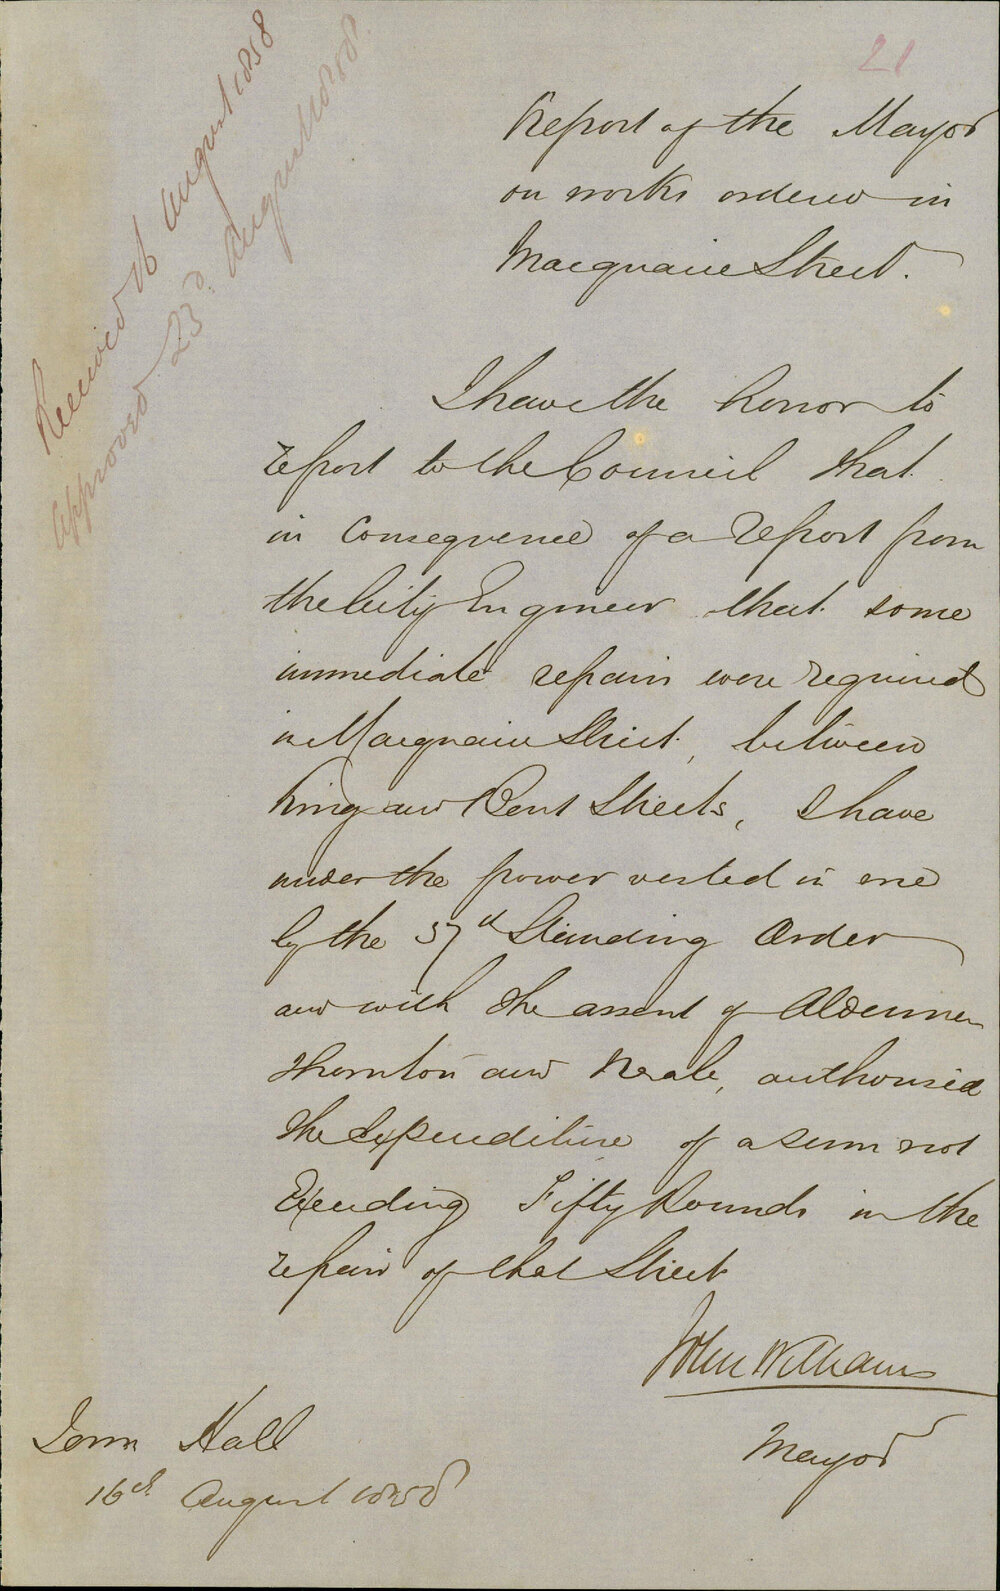 21
Received 16 August 1858
Approved 23d August 1858.
Report of the Mayor
on works ordered in
Macquarie Street.
I have the honor to
report to the Council that
in consequence of a report from
the City Engineer that some
immediate repairs were required
in Macquarie Street, between
King and Bent Streets, I have
under the power vested in me
by the 57th Standing Order
and with the assent of Aldermen
Thornton and Neale, authorised
the Expenditure of a sum not
Exceeding Fifty Pounds in the
repair of that Street
John Williams
Mayor
Town Hall
16th August 1858